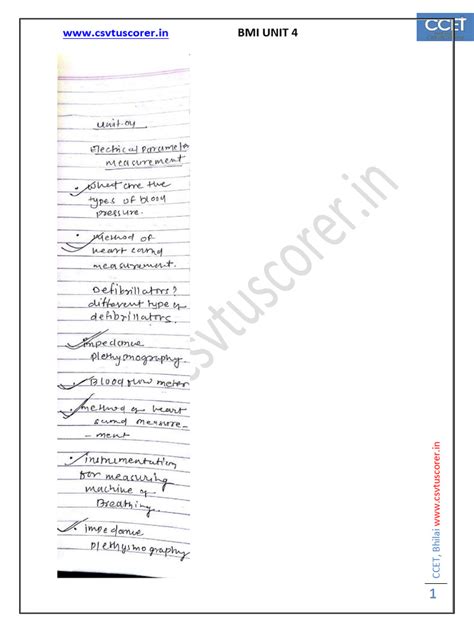 www.csvtuscorer.in
BMI UNIT 4
CCET
Unit-04
Electrical Parameter
measurement
• What are the
types of blood
pressure.
• Method of
heart sound
measurement.
Defibrillators?
different type of
defibrillators.
Impedance
plethysmography
Blood flow meter
• method of heart
sound measure-
-ment
• instrumentation
for measuring
machine of
Breathing.
• impedance
plethysmography
csvtuscorer.in
CCET, Bhilai www.csvtuscorer.in
1